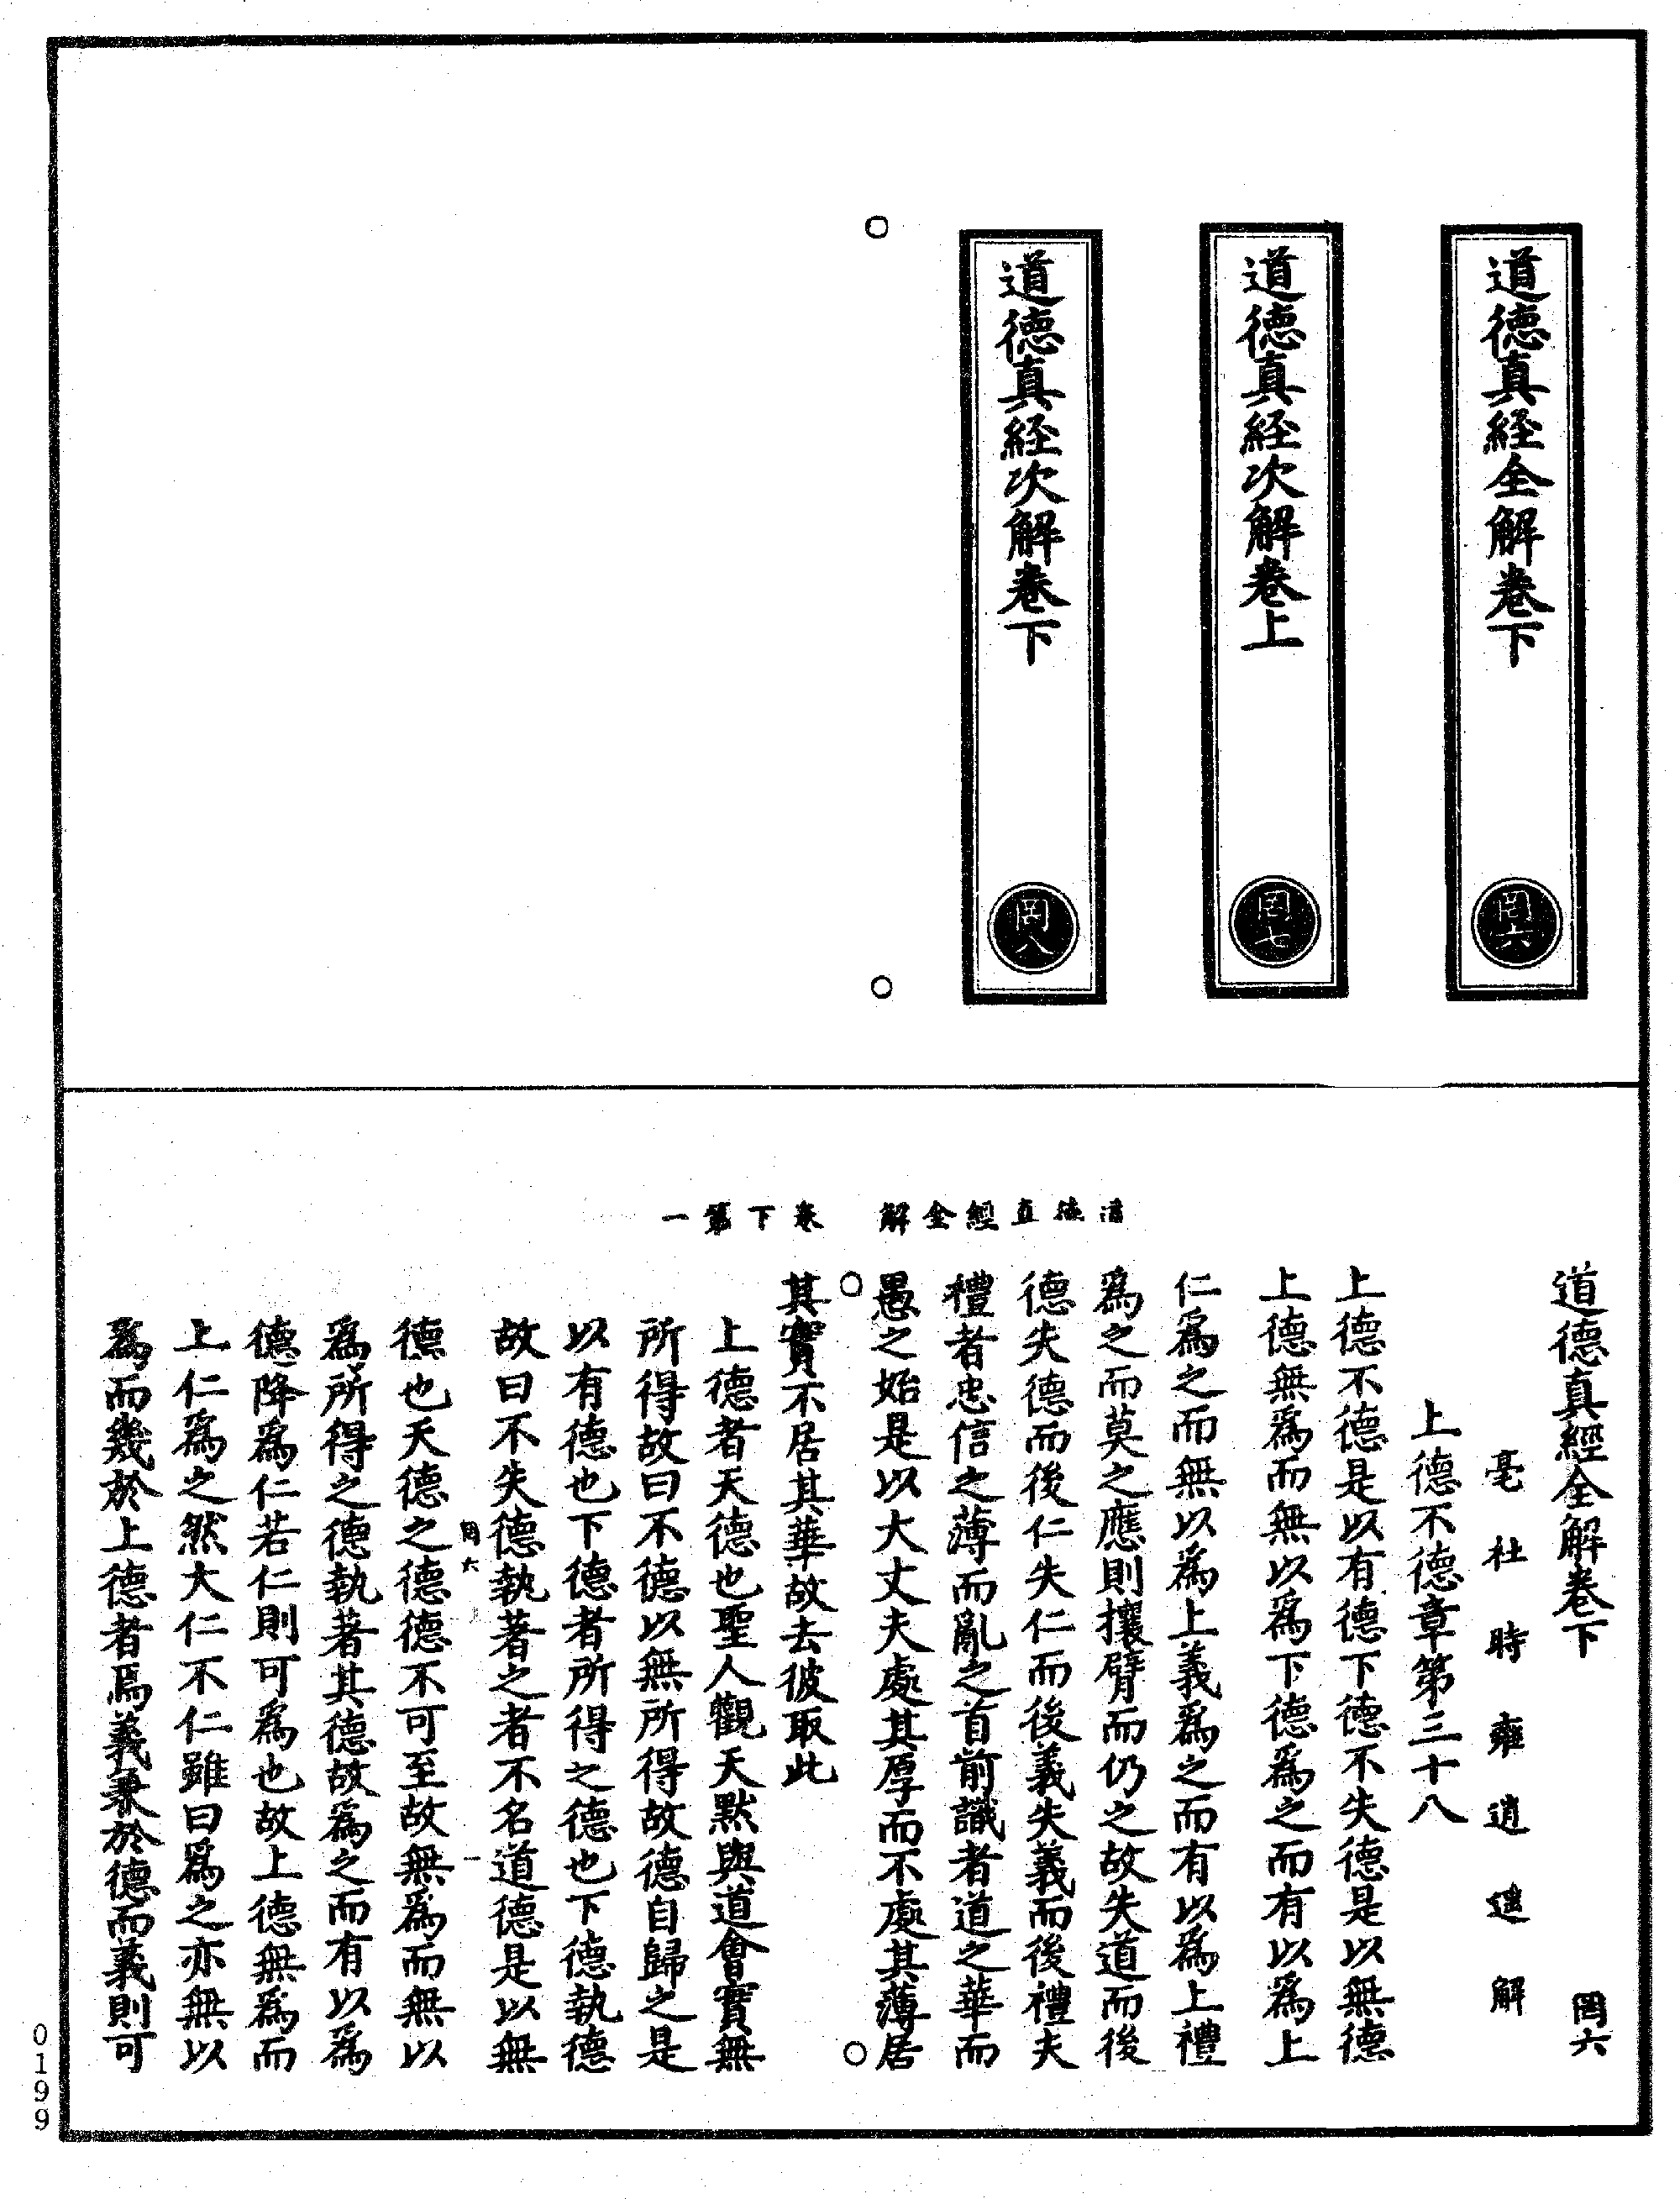 道德真經全解卷下 罔六
道德真經次解卷上 罔七
道德真經次解卷下 罔八
道德真經全解 卷下第一
道德真經全解卷下 罔六
亳社時雍逍遙解
上德不德章第三十八
上德不德是以有德下德不失德是以無德
上德無爲而無以爲下德爲之而有以爲上
仁爲之而無以爲上義爲之而有以爲上禮
爲之而莫之應則攘臂而仍之故失道而後
德失德而後仁失仁而後義失義而後禮夫
禮者忠信之薄而亂之首前識者道之華而
愚之始是以大丈夫處其厚而不處其薄居
其實不居其華故去彼取此
上德者天德也聖人觀天默與道會實無
所得故曰不德以無所得故德自歸之是
以有德也下德者所得之德也下德執德
故曰不失德執著之者不名道德是以無
罔六 一
德也天德之德德不可至故無爲而無以
爲所得之德執著其德故爲之而有以爲
德降爲仁若仁則可爲也故上德無爲而
上仁爲之然大仁不仁雖曰爲之亦無以
爲而幾於上德者焉義兼於德而義則可
0199